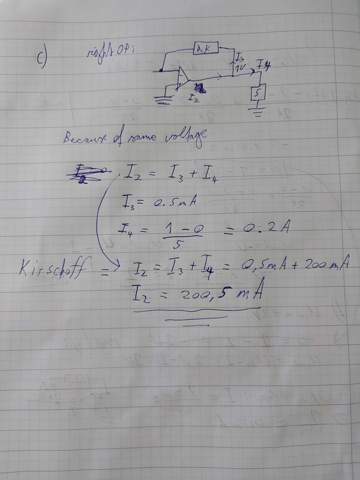 c) right OP:
2k
I3
1V
I4
I2
5
Because of same voltage
I2 = I3 + I4
I3 = 0.5mA
I4 = 1-0/5 = 0.2A
Kirschoff = I2 = I3 + I4 = 0,5mA + 200mA
I2 = 200,5 mA